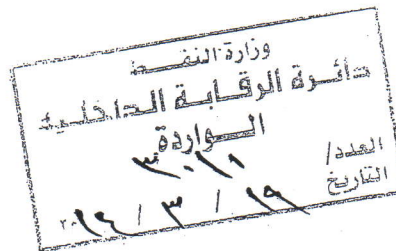 وزارة النفــط
دائرة الرقابة الداخلية
الــواردة
العدد/
التاريخ ١٩ / ٣ /